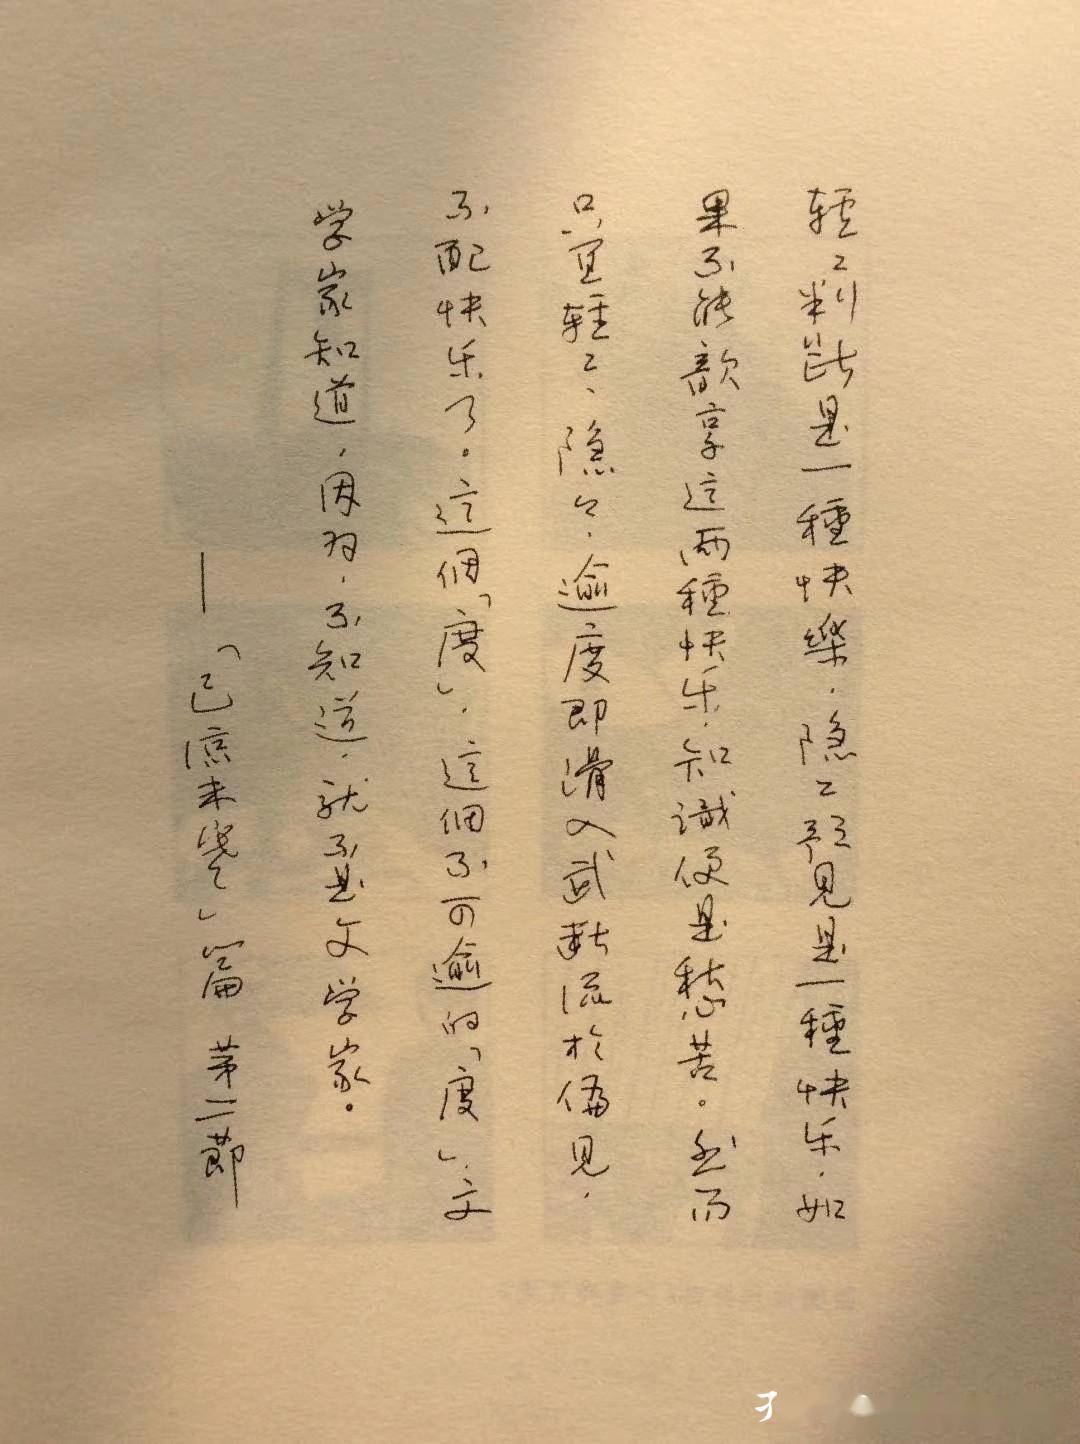 輕〻判断是一種快樂，隐〻預見是一種快乐，如
果不能歆享這两種快乐，知識便是愁苦。然而
只宜輕〻、隐〻，逾度即滑入武斷流於偏見，
不配快乐了。這個「度」，這個不可逾的「度」，文
学家知道，因为，不知道，就不是文学家。
——「已凉未寒」篇 第二節